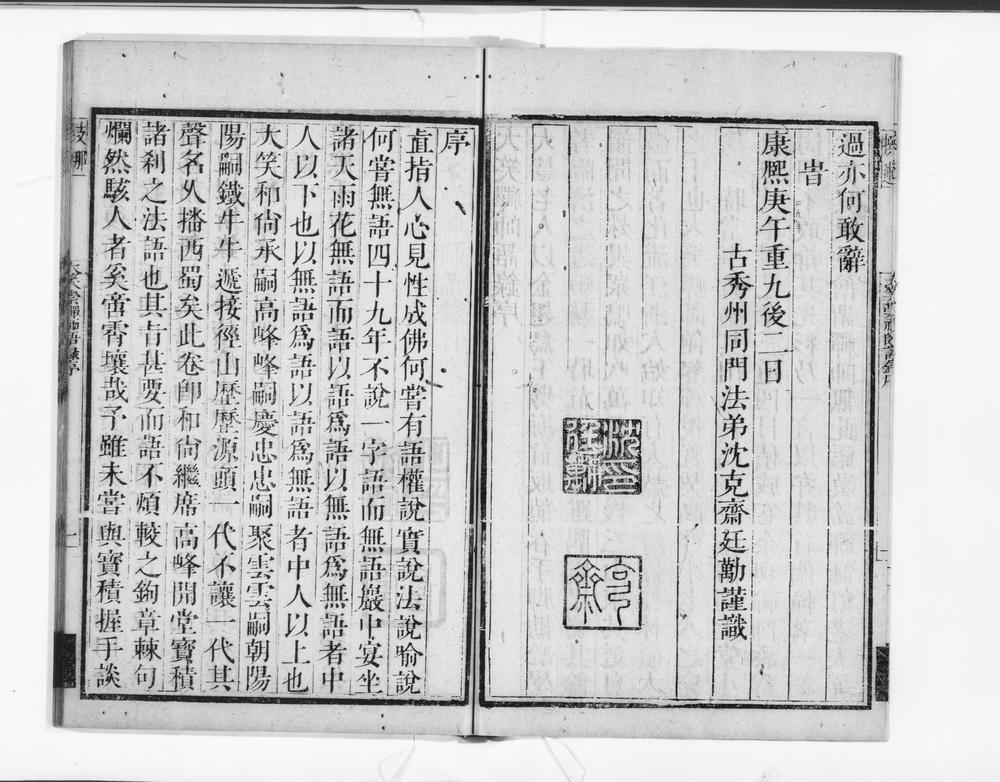 過亦何敢辭
旹
康熙庚午重九後二日
古秀州同門法弟沈克齋廷勱謹識
克齋
序
直指人心見性成佛何嘗有語權說實說法說喻說
何嘗無語四十九年不說一字語而無語巖中宴坐
諸天雨花無語而語以語爲語以無語爲無語者中
人以下也以無語爲語以語爲無語者中人以上也
大笑和尙承嗣高峰峰嗣慶忠忠嗣聚雲雲嗣朝陽
陽嗣鐵牛牛遞接徑山歷歷源頭一代不讓一代其
聲名久播西蜀矣此卷卽和尙繼席高峰開堂寶積
諸刹之法語也其旨甚要而語不煩較之鉤章棘句
爛然駭人者奚啻霄壤哉予雖未嘗與寶積握手談